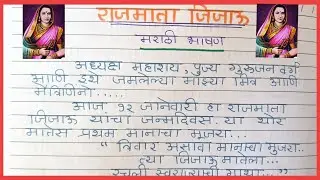 राजमाता जिजाऊ
मराठी भाषण
अध्यक्ष महाराय, पुज्य गुरुजन वर्ग
आणि इथे जमलेल्या माझ्या मित्र आणि
मैत्रिणिनो.....
आज १२ जानेवारी हा राजमाता
जिजाऊ यांचा जन्मदिवस. या थोर
मातेस प्रथम मानाचा मुजरा...
"त्रिवार असावा मानाचा मुजरा..
त्या जिजाऊ मातेला...
रचली स्वराज्याची गाथा..."